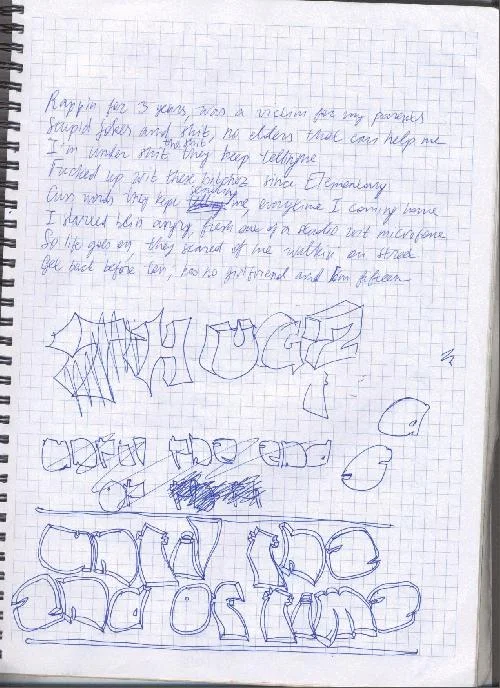 Rappin for 3 years, was a victim for my parents
Stupid Jokes and shit, no elders that can help me
I'm under shit the shit they keep telling me
Fucked up wit these bitchez since Elementary
Cuss words they kept sending me, everytime I coming home
I started bein angry, fresh one of a studio wit microfone
So life goes on, they scared of me walkin on street
Get back before ten, has no girlfriend and I'm fifteen
HUGZ
until the end
of
until the
end of time